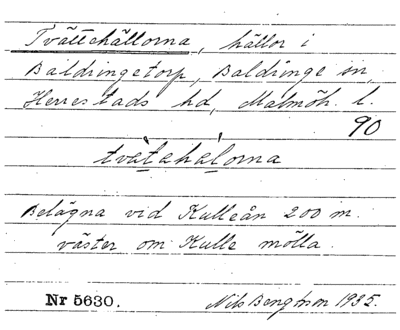 Tvättehällorna, hällor i
Baldringetorp, Baldringe sn,
Herrestads hd, Malmöh. l.
90
tvätahalorna
Belägna vid Kulleån 200 m.
väster om Kulle mölla.
Nr 5630. Nils Bengtson 1935.